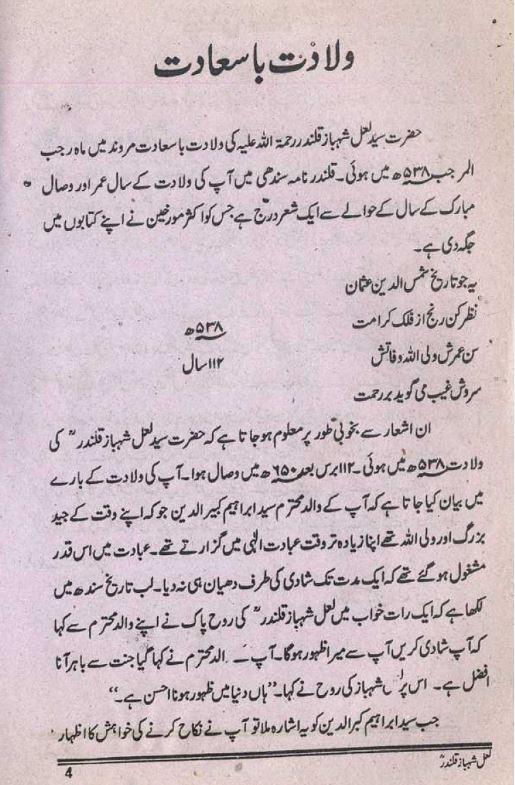 ولادت باسعادت
حضرت سید لعل شہباز قلندر رحمۃ اللہ علیہ کی ولادت باسعادت مروند میں ماہ رجب
المرجب ۵۳۸ھ میں ہوئی۔ قلندر نامہ سندھی میں آپ کی ولادت کے سال عمر اور وصال
مبارک کے سال کے حوالے سے ایک شعر درج ہے جس کو اکثر مورخین نے اپنے کتابوں میں
جگہ دی ہے۔
بہ جو تاریخ شمس الدین عثمان
نظر کن رنج از فلک کرامت ۵۳۸ھ
سن عمرش ولی اللہ وفاتش ۱۱۲ سال
سروش غیب می گوید بر رحمت
ان اشعار سے بخوبی طور پر معلوم ہو جاتا ہے کہ حضرت سید لعل شہباز قلندرؒ کی
ولادت ۵۳۸ھ میں ہوئی۔ ۱۱۲ برس بعد ۶۵۰ھ میں وصال ہوا۔ آپ کی ولادت کے بارے
میں بیان کیا جاتا ہے کہ آپ کے والد محترم سید ابراہیم کبیر الدین جو کہ اپنے وقت کے جید
بزرگ اور ولی اللہ تھے اپنا زیادہ تر وقت عبادت الہٰی میں گزارتے تھے۔ عبادت میں اس قدر
مشغول ہو گئے تھے کہ ایک مدت تک شادی کی طرف دھیان ہی نہ دیا۔ لب تاریخ سندھ میں
لکھا ہے کہ ایک رات خواب میں لعل شہباز قلندرؒ کی روح پاک نے اپنے والد محترم سے کہا
کہ آپ شادی کریں آپ سے میرا ظہور ہوگا۔ آپ کے والد محترم نے کہا گیا جنت سے باہر آنا
افضل ہے۔ اس پر لعل شہباز کی روح نے کہا۔ ”ہاں دنیا میں ظہور ہونا احسن ہے۔“
جب سید ابراہیم کبر الدین کو یہ اشارہ ملا تو آپ نے نکاح کرنے کی خواہش کا اظہار
لعل شہباز قلندرؒ
4